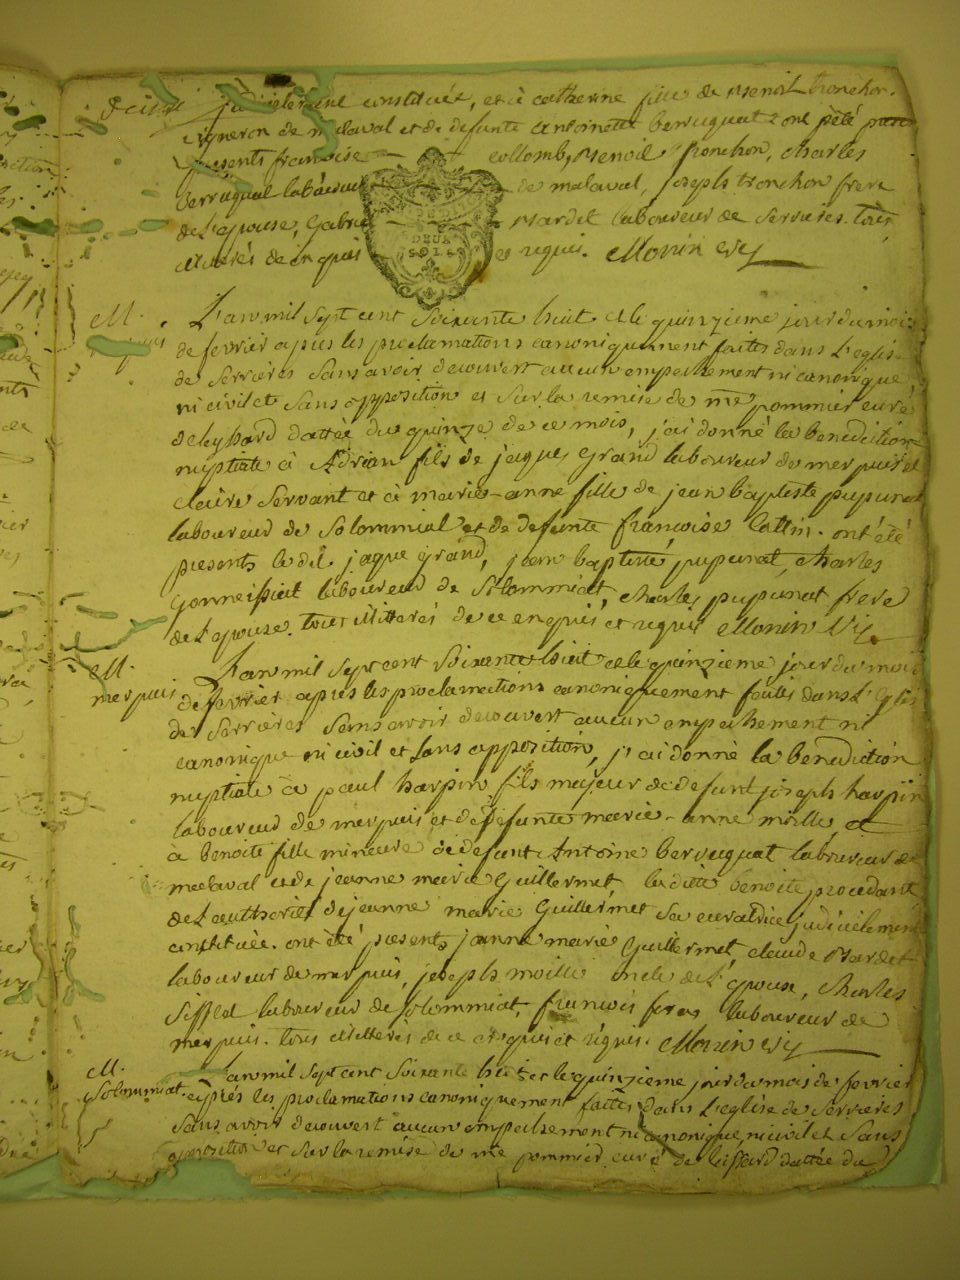 judicielement constituée, et à catherine fille de Benoit tronchon.
vigneron de malaval et de defunte antoinette berruquat. ont été
presents françoise collomb, Benoit tronchon, charles
berruquat laboureur de malaval, joseph tronchon frere
de L'epouse, Gabriel Mardet laboureur de Serrieres. tous
illiterés de ce enquis et requis. Monin vy
DEUX
SOLS
M.
L'an mil sept cent soixante huit et le quinzieme jour du mois
de fevrier apres les proclamations canoniquement faites dans L'eglise
de Serrieres sans avoir decouvert aucun empechement ni canonique
ni civil et sans opposition et sur la remise de me pommier curé
de leyssard dattée du quinze de ce mois, j'ai donné la benediction
nuptiale à Adrian fils de jaques Grand laboureur de merpuis et
claire Servant et à marie-anne fille de jean baptiste pupunat
laboureur de Solommiat et de defunte françoise Cattin. ont été
presents le dit jaque Grand, jean baptiste pupunat, charles
laboureur de Solommiat, charles pupunat frere
de L'epouse. tous illiterés de ce enquis et requis Monin vy.
M.
merpuis
L'an mil sept cent soixante huit et le quinzieme jour du mois
de fevrier apres les proclamations canoniquement faites dans L'eglise
de Serrieres sans avoir decouvert aucun empechement ni
canonique ni civil et sans opposition, j'ai donné la benediction
nuptiale à paul harpin fils majeur de defunt joseph harpin
laboureur de merpuis et de defunte marie-anne moille, et
à benoite fille mineure de defunt Antoine berruquat laboureur de
malaval et de jeanne marie Guillermet, laditte benoite procedant
de L'authorité de jeanne marie Guillermet sa curatrice judicielement
constituée. ont été presents jeanne marie Guillermet, claude Mardet
laboureur de merpuis, joseph moille oncle de L'epoux, charles
Sifflet laboureur de Solommiat, françois laboureur de
merpuis. tous illiterés de ce enquis et requis. Monin vy
M.
Solommiat.
L'an mil sept cent soixante huit et le quinzieme jour du mois de fevrier
après les proclamations canoniquement faites dans L'eglise de Serrieres
sans avoir decouvert aucun empechement ni canonique ni civil et sans
opposition et sur la remise de me pommier curé de leissard dattée du